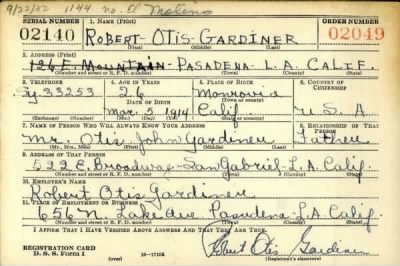 9/22/42 1144 no. El Molino
SERIAL NUMBER 1. NAME (Print) ORDER NUMBER
02140 ROBERT OTIS GARDINER 02049
(First) (Middle) (Last)
2. ADDRESS (Print)
126 E. MOUNTAIN PASADENA L.A. CALIF.
(Number and street or R. F. D. number) (Town) (County) (State)
3. TELEPHONE 4. AGE IN YEARS 5. PLACE OF BIRTH 6. COUNTRY OF CITIZENSHIP
Sy. 33253 26 Monrovia
DATE OF BIRTH (Town or county)
Mar. 5 1914 Calif U.S.A
(Mo.) (Day) (Yr.) (State or country)
7. NAME OF PERSON WHO WILL ALWAYS KNOW YOUR ADDRESS 8. RELATIONSHIP OF THAT PERSON
Mr. Otis John Gardiner Father
(Mr., Mrs., Miss) (First) (Middle) (Last)
9. ADDRESS OF THAT PERSON
522 E. Broadway San Gabriel L.A. Calif.
(Number and street or R. F. D. number) (Town) (County) (State)
10. EMPLOYER'S NAME
Robert Otis Gardiner
11. PLACE OF EMPLOYMENT OR BUSINESS
656 N Lake Ave Pasadena L.A. Calif.
(Number and street or R. F. D. number) (Town) (County) (State)
I AFFIRM THAT I HAVE VERIFIED ABOVE ANSWERS AND THAT THEY ARE TRUE.
REGISTRATION CARD
D. S. S. Form 1 Robert Otis Gardiner